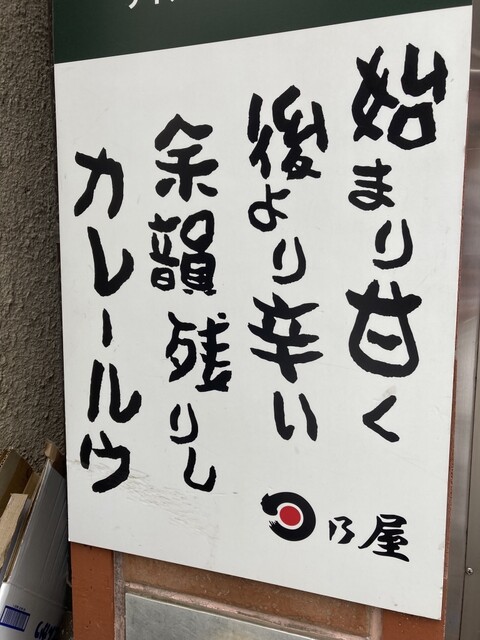 始まり甘く
後より辛い
余韻残りし
カレールウ
日乃屋